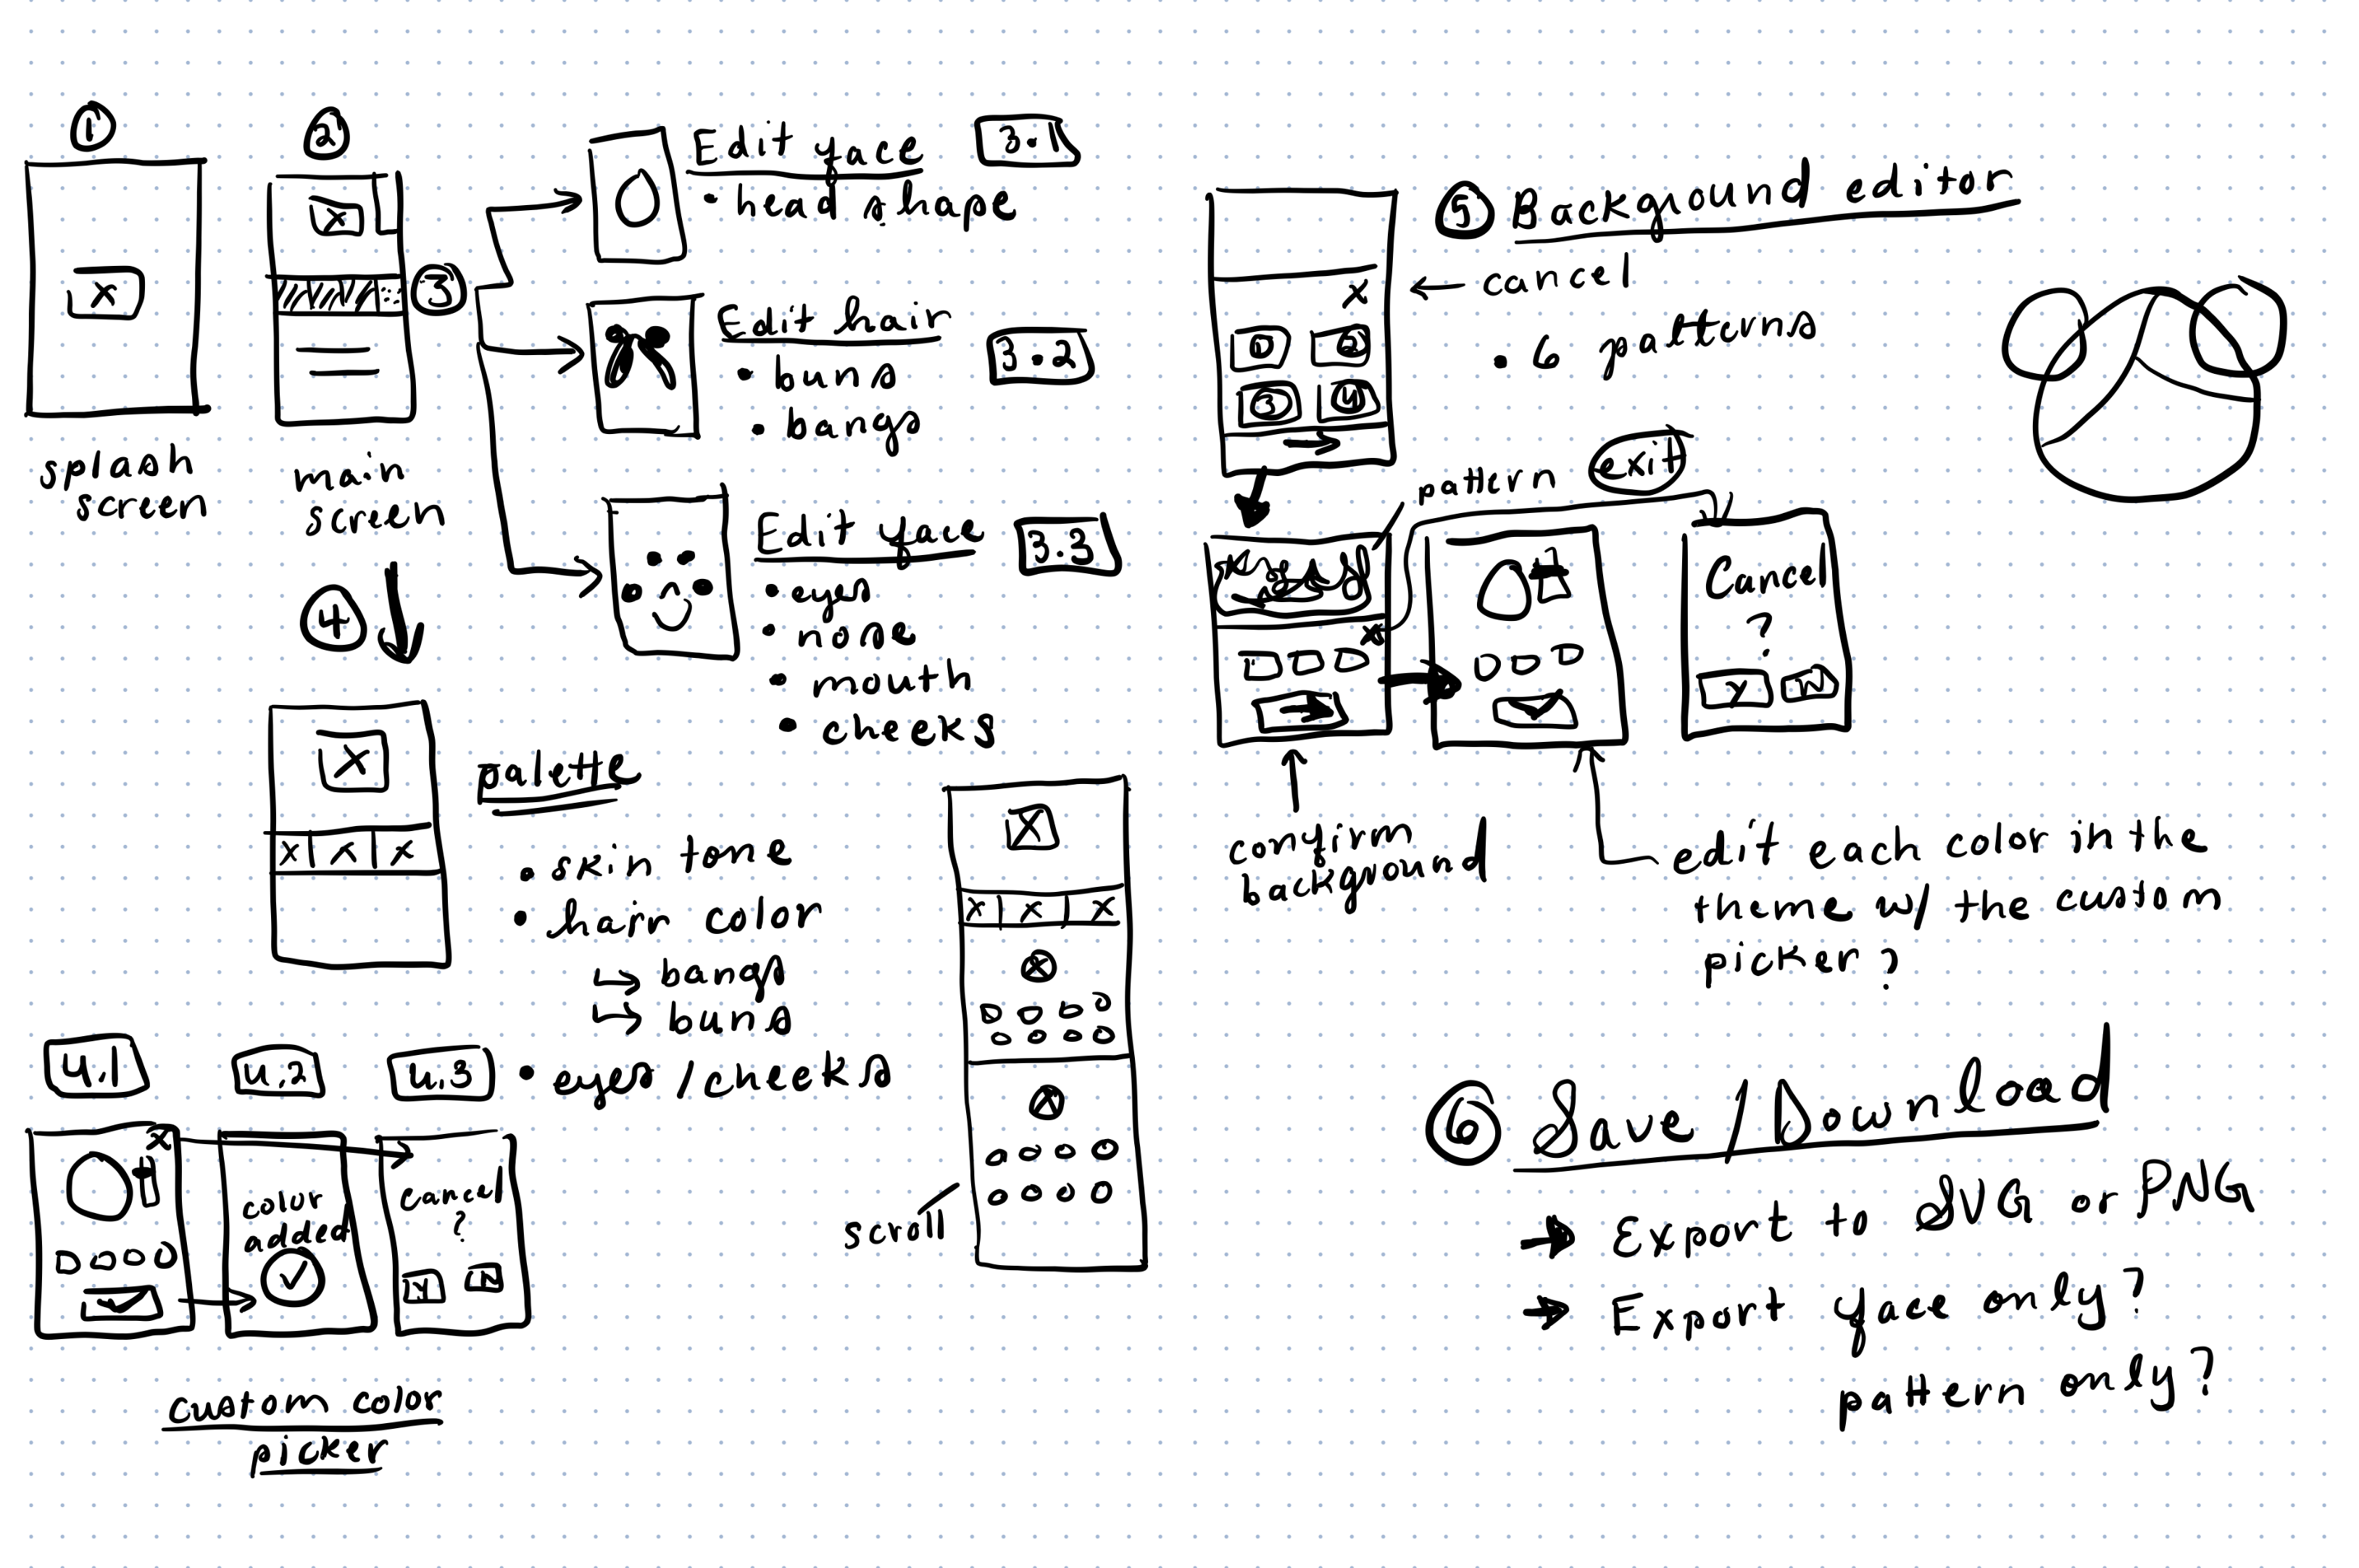 1
splash
screen
2
X
X
main
screen
3
Edit face
3.1
• head shape
Edit hair
3.2
• buns
• bangs
Edit face
3.3
• eyes
• nose
• mouth
• cheeks
4
X
X X X
palette
• skin tone
• hair color
↳ bangs
↳ buns
• eyes / cheeks
4.1
4.2
4.3
X
color
added
cancel
?
Y N
custom color
picker
X
X X X
X
X
scroll
5 Background editor
X
← cancel
1 2
3 4
• 6 patterns
pattern
exit
X
Cancel
?
Y N
confirm
background
edit each color in the
theme w/ the custom
picker?
6 Save / Download
→ Export to SVG or PNG
→ Export face only?
pattern only?